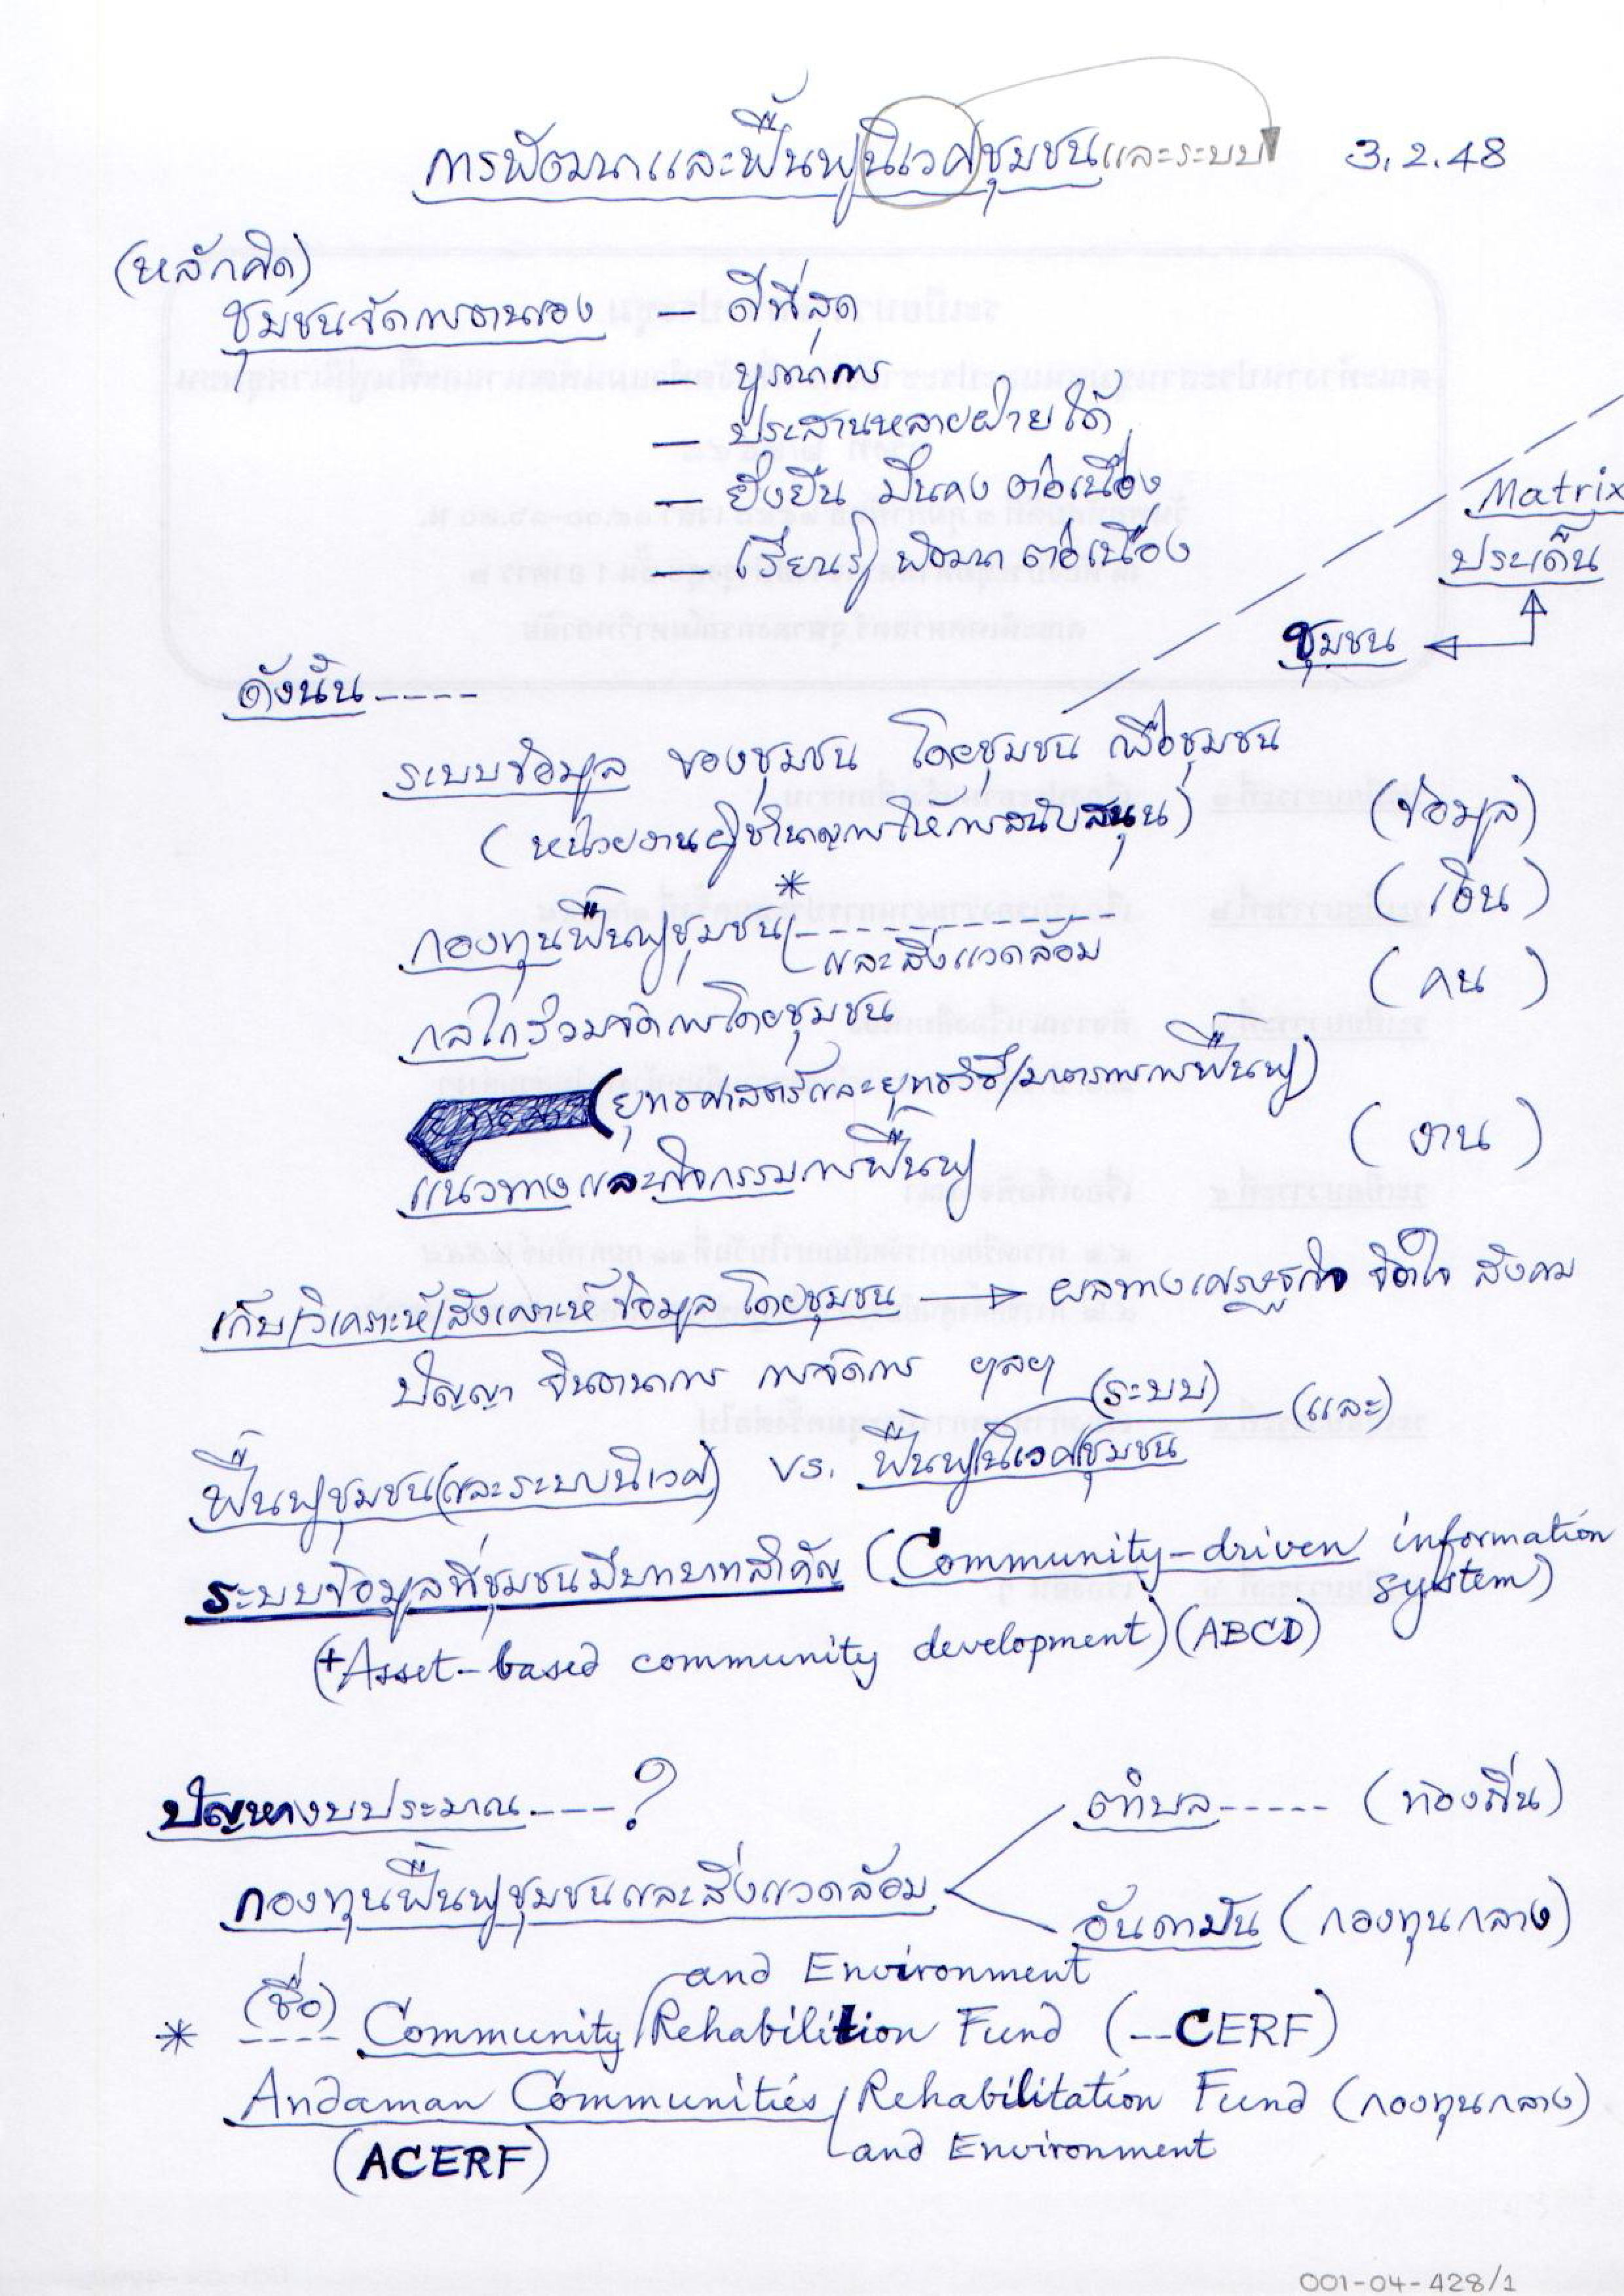 การพัฒนาและฟื้นฟูนิเวศชุมชนและระบบ 3.2.48
(หลักคิด)
ชุมชนจัดการตนเอง — ดีที่สุด
— บูรณาการ
— ประสานหลายฝ่ายได้
— ยั่งยืน มั่นคง ต่อเนื่อง
— เรียนรู้ พัฒนา ต่อเนื่อง
Matrix
ประเด็น
ชุมชน
ดังนั้น-----
ระบบข้อมูล ของชุมชน โดยชุมชน เพื่อชุมชน
(หน่วยงานผู้ชำนาญการให้การสนับสนุน) (ข้อมูล)
*
กองทุนฟื้นฟูชุมชน ------------- (เงิน)
และสิ่งแวดล้อม
กลไกร่วมจัดการโดยชุมชน (คน)
(ยุทธศาสตร์และยุทธวิธี/มาตรการการฟื้นฟู)
แนวทางและกิจกรรมการฟื้นฟู (งาน)
เก็บ/วิเคราะห์/สังเคราะห์ข้อมูลโดยชุมชน → ผลทางเศรษฐกิจ จิตใจ สังคม
ปัญญา จินตนาการ การจัดการ ฯลฯ
(ระบบ) (และ)
ฟื้นฟูชุมชน(และระบบนิเวศ) vs. ฟื้นฟูนิเวศชุมชน
ระบบข้อมูลที่ชุมชนมีบทบาทสำคัญ (Community-driven information system)
(+Asset-based community development) (ABCD)
ปัญหางบประมาณ----?
ตำบล----- (ท้องถิ่น)
กองทุนฟื้นฟูชุมชนและสิ่งแวดล้อม
อันดามัน (กองทุนกลาง)
and Environment
* (ชื่อ) ---- Community Rehabilition Fund (--CERF)
Andaman Communities Rehabilitation Fund (กองทุนกลาง)
and Environment
(ACERF)
001-04-428/1